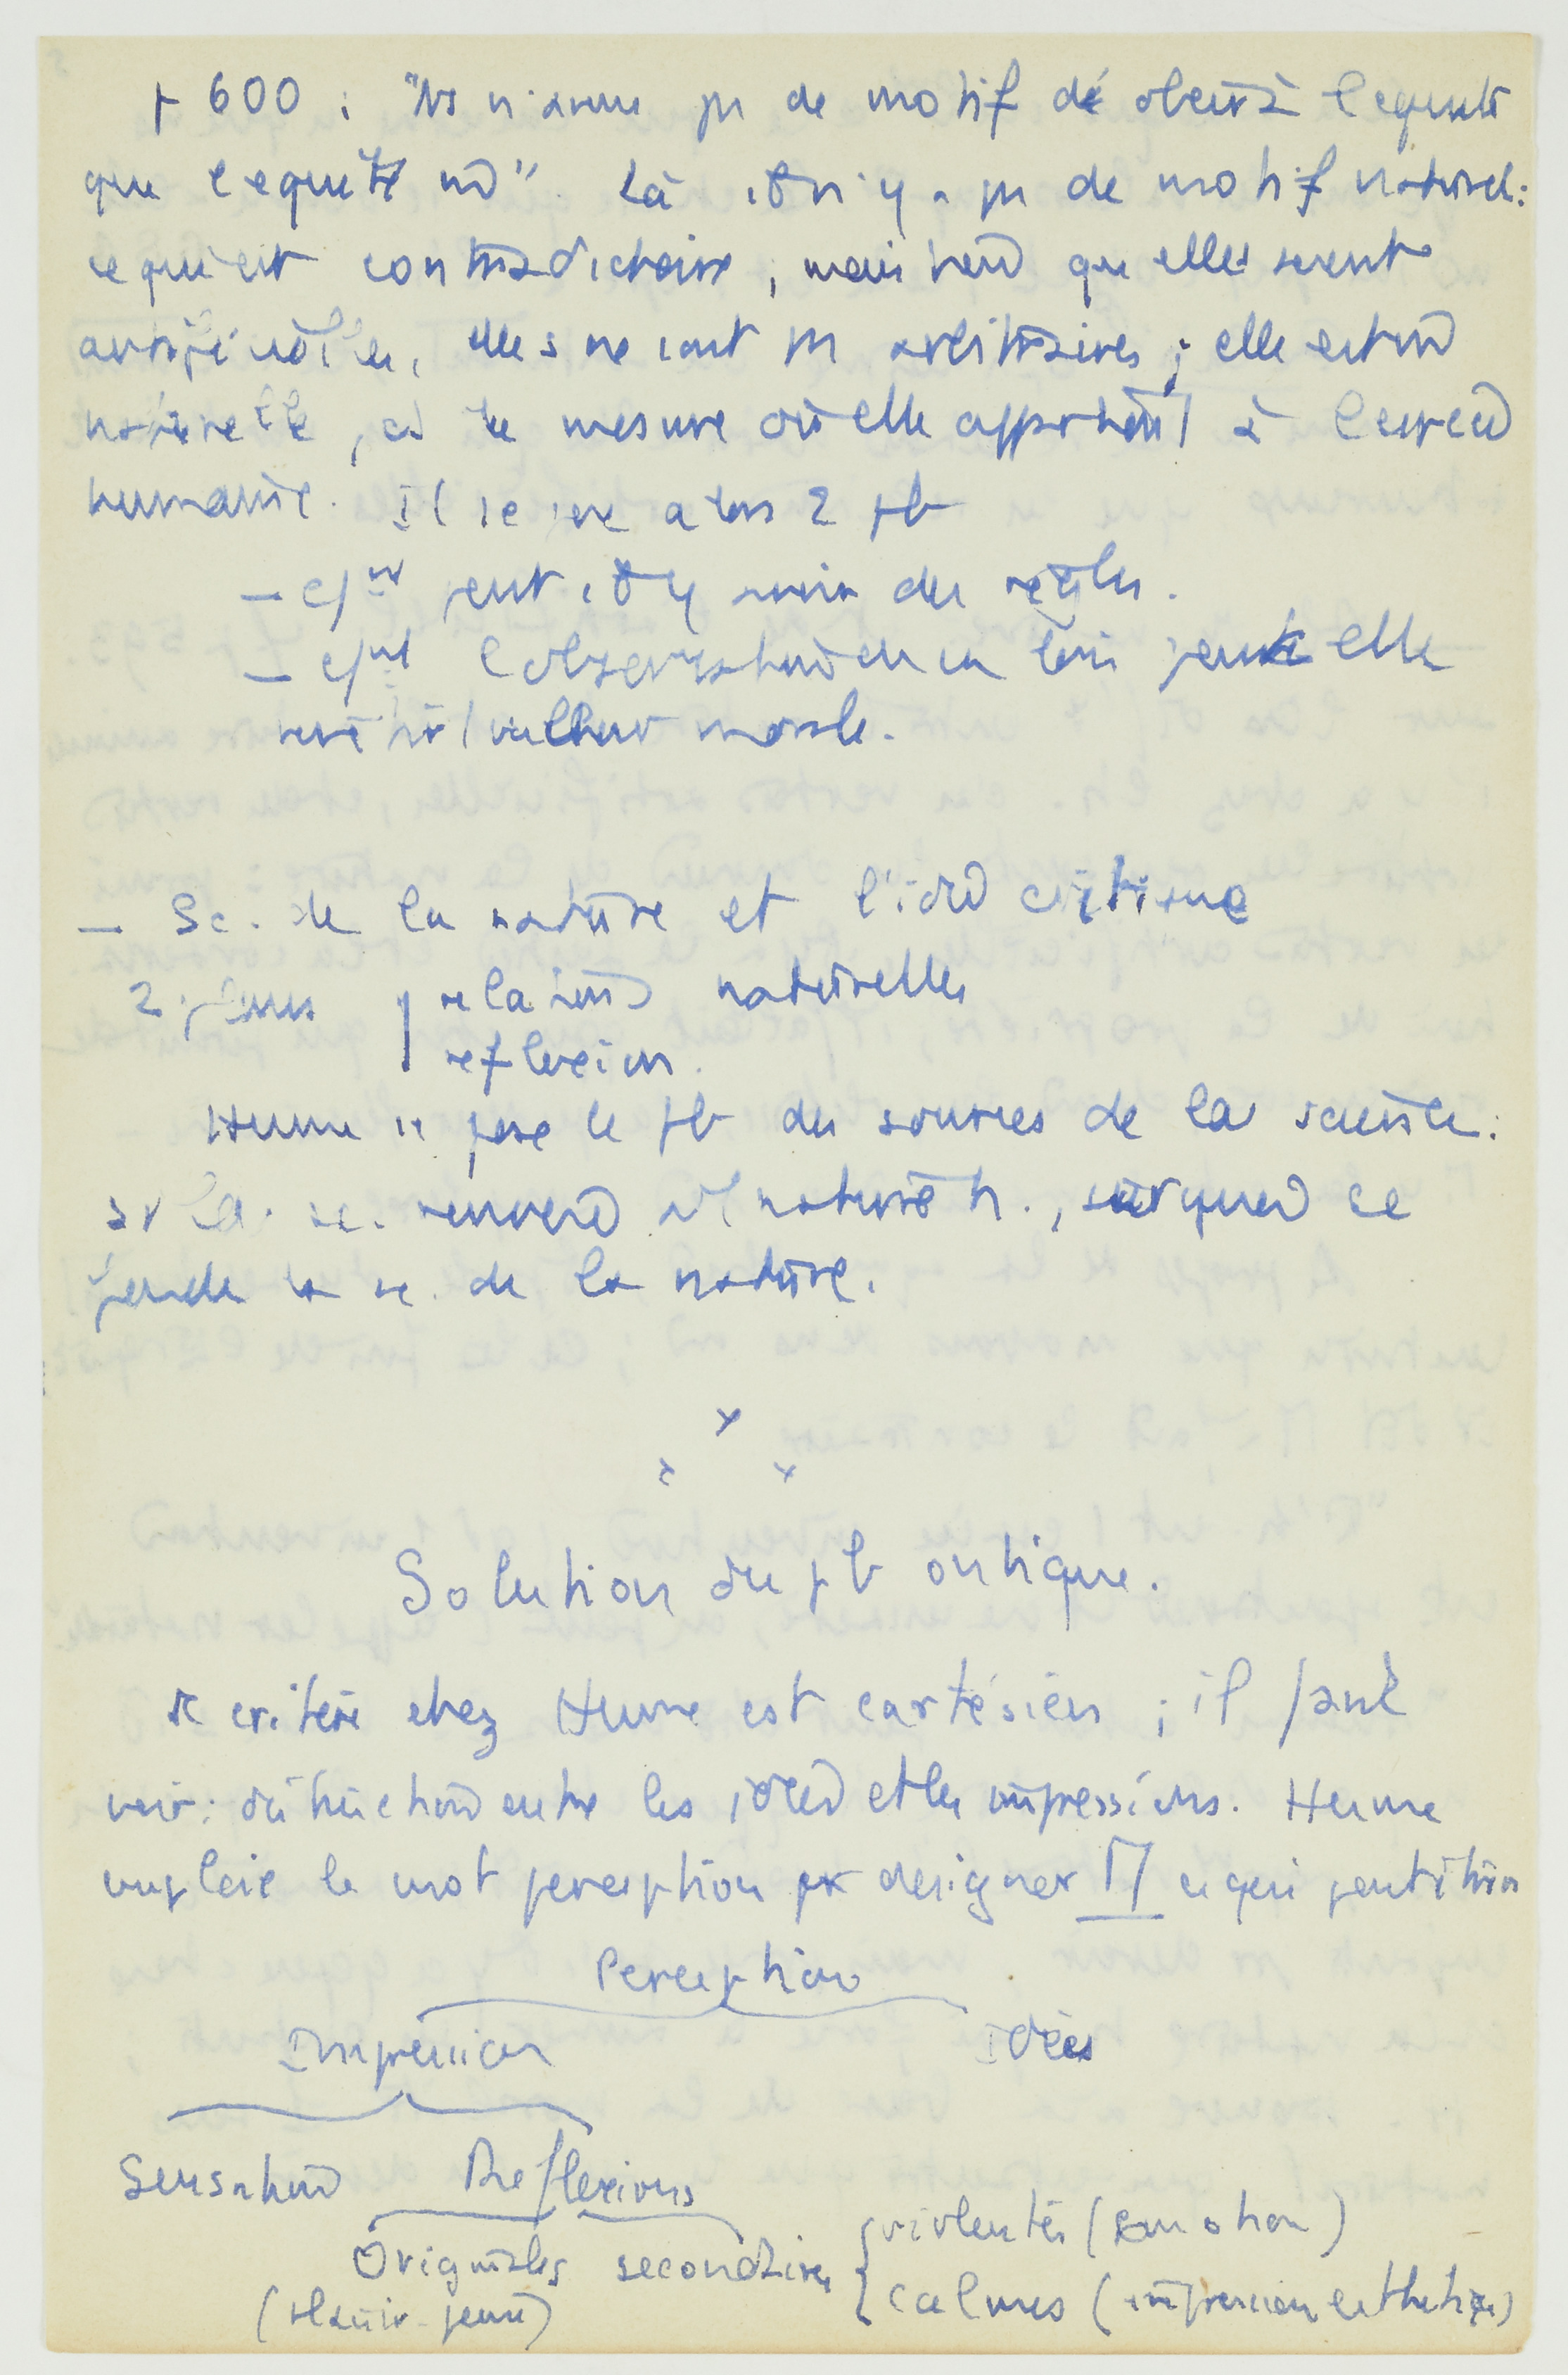 p 600 : "Ns n'avons pas de motif d'obéir à l'équité
que l'équité m̂". Là, il n'y a pas de motif naturel :
ce qui est contradictoire, mais bien qu'elles soient
artificielles, elles ne sont pas arbitraires ; elle est
naturelle, ds la mesure où elle appartient à l'espèce
humaine. Il se pose alors 2 pb
— cpt peut-il y avoir des règles.
— cpt l'observation de ces lois peut-elle
valeur morale.
— Sc. de la nature et l'idée critique
2 plans relations naturelles
réflexion.
Hume se pose le pb des sources de la science.
si la sc. nature h., sur quoi se
fonde la sc. de la nature.
x
x x
Solution du pb critique.
Le critère chez Hume est cartésien ; il faut
voir : distinction entre les idées et les impressions. Hume
emploie le mot perception pr designer ce qui
Perception
Impression Idées
Sensation Reflexions
Originales secondaires violentes (Emotion)
(plaisir-peine) calmes (impression esthétique)